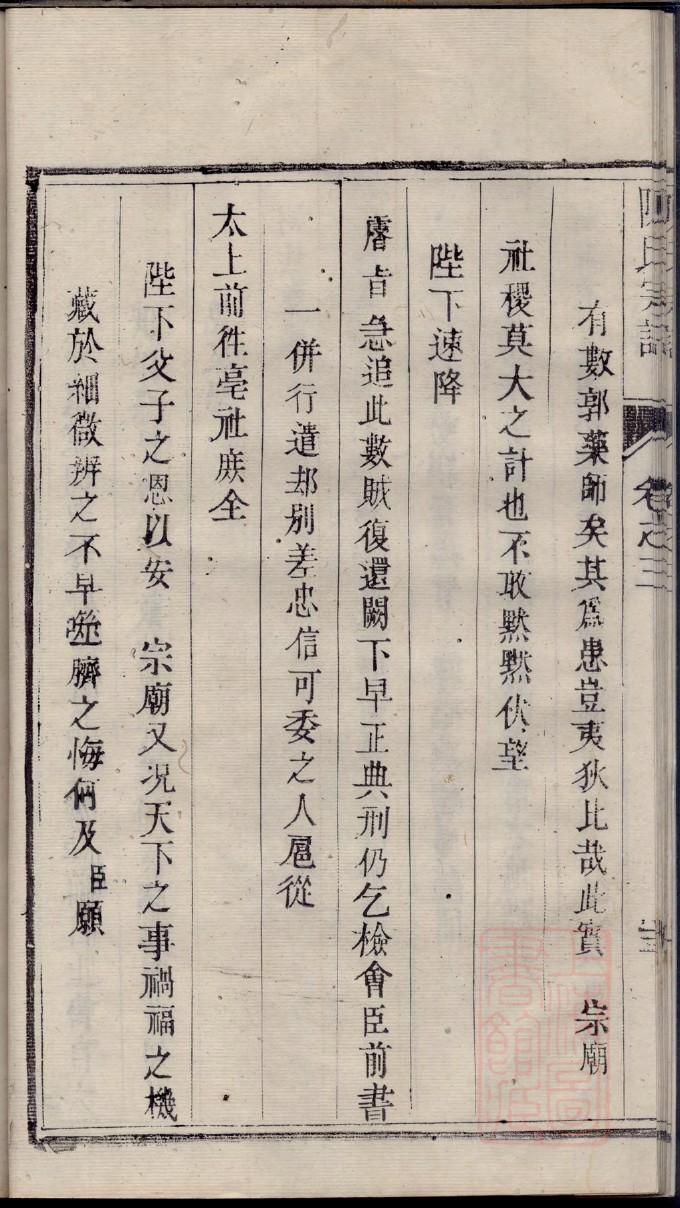 陳氏宗譜 卷之三
有數郭藥師矣其爲患豈夷狄比哉此實 宗廟
社稷莫大之計也不敢黙黙伏望
陛下速降
睿旨急追此數賊復還闕下早正典刑仍乞檢會臣前書
一併行遣却别差忠信可委之人扈從
太上前徃亳社庶全
陛下父子之恩以安 宗廟又况天下之事禍福之機
藏於細微辨之不早噬臍之悔何及臣願